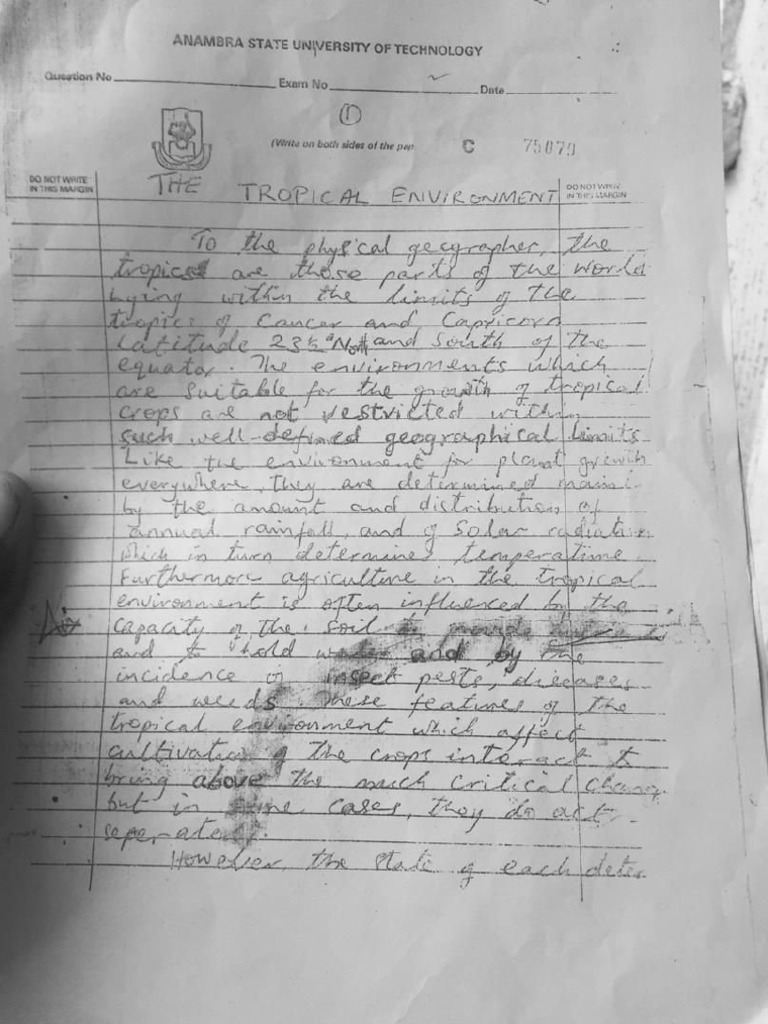 ANAMBRA STATE UNIVERSITY OF TECHNOLOGY
Question No Exam No Date
1
(Write on both sides of the pap C 75079
DO NOT WRITE
IN THIS MARGIN
DO NOT WRITE
IN THIS MARGIN
THE TROPICAL ENVIRONMENT
To the physical geographer, the
tropics are those parts of the world
lying within the limits of the
tropics of Cancer and Capricorn
Latitude 23½° North and South of the
equator. The environments which
are suitable for the growth of tropical
crops are not restricted within
such well-defined geographical limits
Like the environment for plant growth
everywhere, they are determined main
by the amount and distribution of
annual rainfall, and of solar radiation
which in turn determines temperature.
Furthermore agriculture in the tropical
environment is often influenced by the
capacity of the soil to provide
and to hold water and by the
incidence of insect pests, diseases
and weeds. These features of the
tropical environment which affect
cultivation of the crops interact to
bring above the much critical change
but in some cases, they do act
seperately.
However, the state of each deter